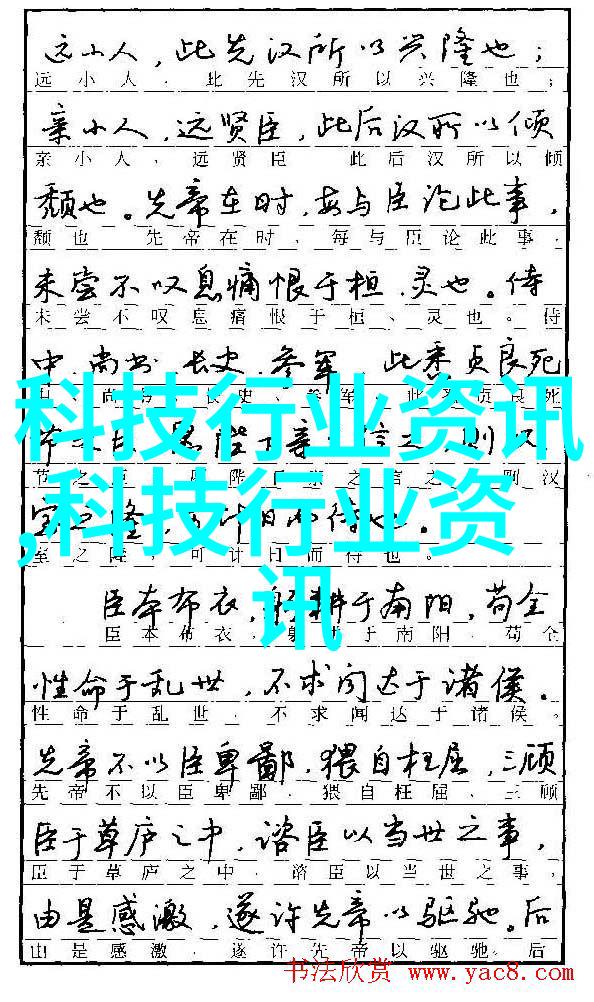 远小人，此先汉所以兴隆也；
远小人，此先汉所以兴隆也；
亲小人，远贤臣，此后汉所以倾
亲小人，远贤臣 此后汉所以倾
颓也。先帝在时，每与臣论此事，
颓也 先帝在时，每与臣论此事，
未尝不叹息痛恨于桓、灵也。侍
未尝不叹息痛恨于桓、灵也。侍
中、尚书、长史、参军 此悉贞良死
科技行业资讯
,科技行业资
讯
室之隆，可计日而待也。
室之隆，可计日而待也。
臣本布衣，躬耕于南阳，苟全
臣本布衣，躬耕于南阳，苟全
性命于乱世，不求闻达于诸侯。
性命于乱世，不求闻达于诸侯。
先帝不以臣卑鄙，猥自枉屈，三顾
先帝不以臣卑鄙，猥自枉屈、三顾
臣于草庐之中，谘臣以当世之事，
臣于草庐之中，谘臣以当世之事，
由是感激，遂许先帝以驱驰。后
由是感激，遂许先帝以驱驰。后
书法欣赏 www.yac8.com